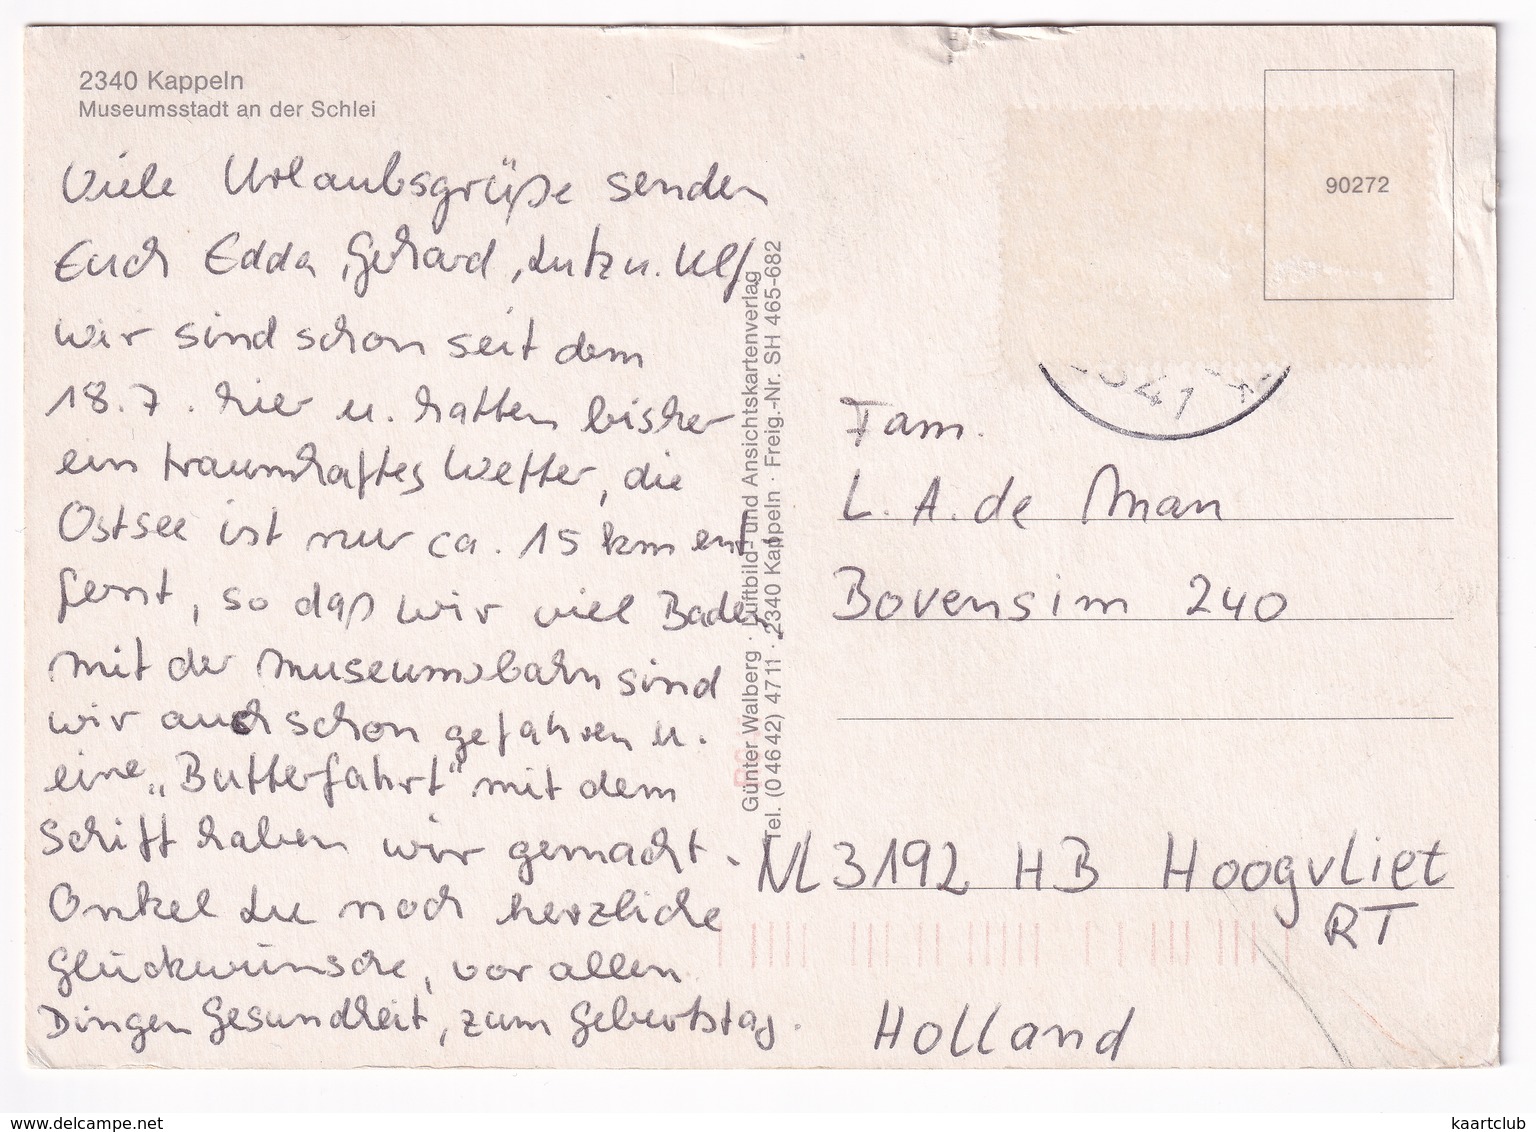 2340 Kappeln
Museumsstadt an der Schlei
Viele Urlaubsgrüße senden
Euch Edda, Gerhard, Lutz u. Ulf
wir sind schon seit dem
18.7. hier u. hatten bisher
ein traumhaftes Wetter, die
Ostsee ist nur ca. 15 km ent
fernt, so daß wir viel Baden,
mit der Museumsbahn sind
wir auch schon gefahren u.
eine „Butterfahrt" mit dem
Schiff haben wir gemacht.
Onkel Lu noch herzliche
Glückwünsche, vor allen
Dingen Gesundheit, zum Geburtstag.
Günter Walberg · Luftbild- und Ansichtskartenverlag
Tel. (0 46 42) 47 11 · 2340 Kappeln · Freig.-Nr. SH 465-682
90272
Fam.
L. A. de Man
Bovensim 240
NL 3192 HB Hoogvliet
RT
Holland
www.delcampe.net
kaartclub